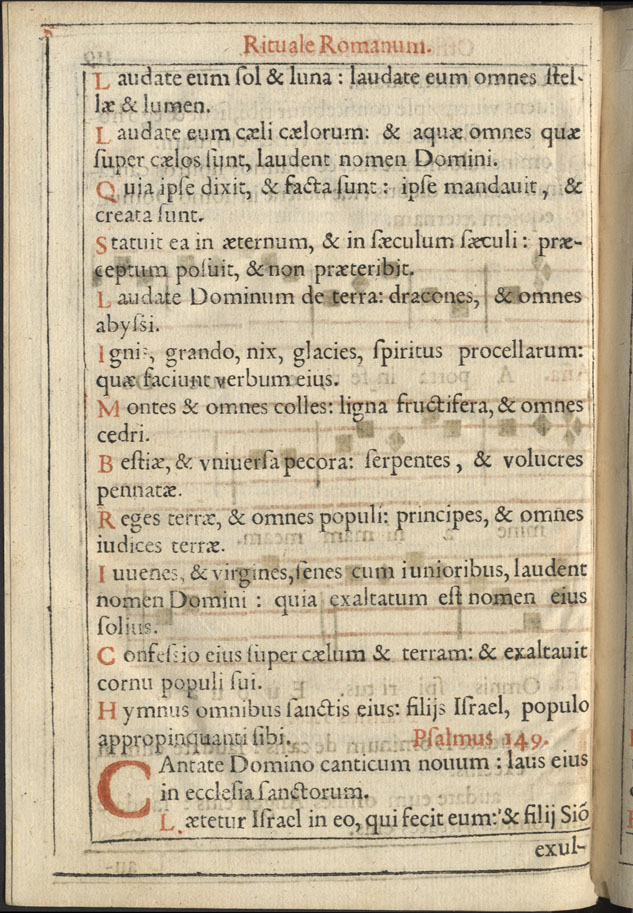 Rituale Romanum.
Laudate eum ſol & luna : laudate eum omnes ſtel-
læ & lumen.
Laudate eum cæli cælorum: & aquæ omnes quæ
ſuper cælos ſunt, laudent nomen Domini.
Quia ipſe dixit, & facta ſunt : ipſe mandauit , &
creata ſunt.
Statuit ea in æternum, & in ſæculum ſæculi : præ-
ceptum poſuit, & non præteribit.
Laudate Dominum de terra: dracones, & omnes
abyſsi.
Ignis, grando, nix, glacies, ſpiritus procellarum:
quæ faciunt verbum eius.
Montes & omnes colles: ligna fructifera, & omnes
cedri.
Beſtiæ, & vniuerſa pecora: ſerpentes , & volucres
pennatæ.
Reges terræ, & omnes populi: principes, & omnes
iudices terræ.
Iuuenes, & virgines, ſenes cum iunioribus, laudent
nomen Domini : quia exaltatum eſt nomen eius
ſolius.
Confeſsio eius ſuper cælum & terram: & exaltauit
cornu populi ſui.
Hymnus omnibus ſanctis eius: filijs Iſrael, populo
appropinquanti ſibi. Pſalmus 149.
CAntate Domino canticum nouum : laus eius
in eccleſia ſanctorum.
Lætetur Iſrael in eo, qui fecit eum: & filij Sió
exul-